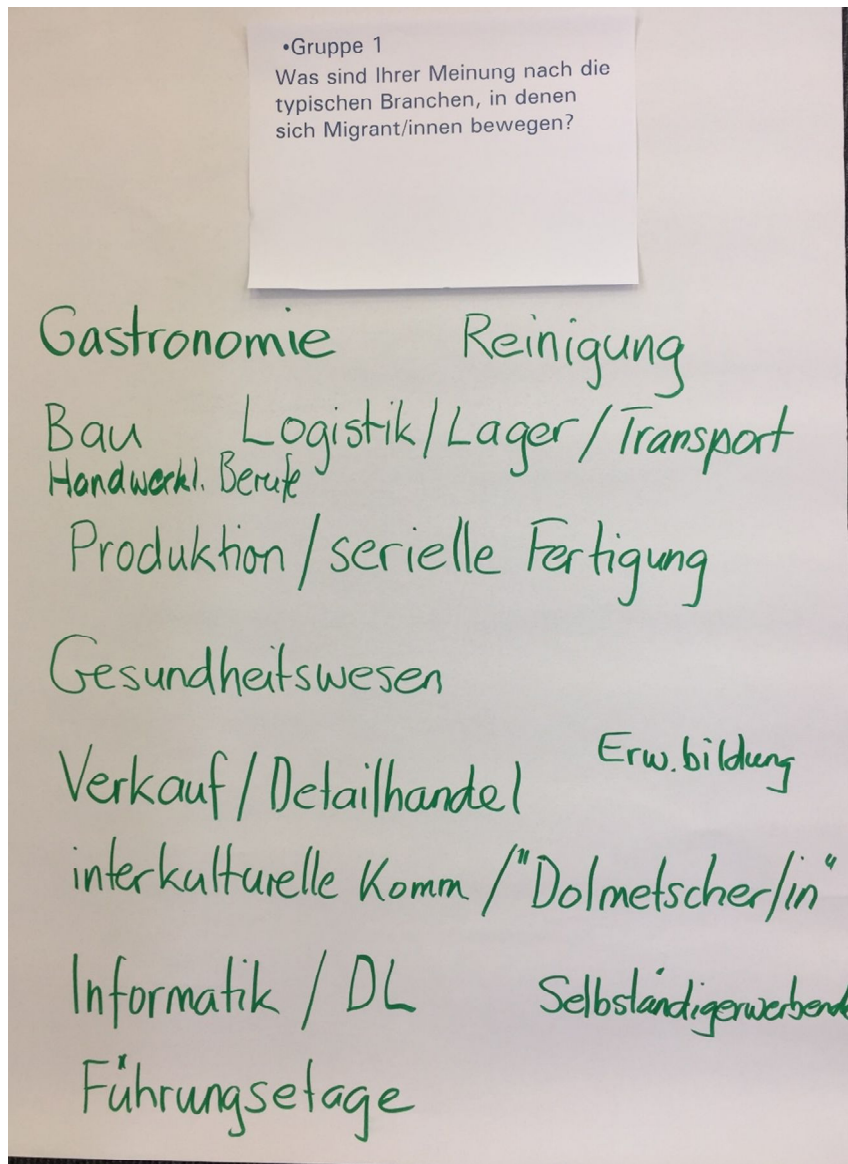 •Gruppe 1
Was sind Ihrer Meinung nach die
typischen Branchen, in denen
sich Migrant/innen bewegen?
Gastronomie Reinigung
Bau Logistik/Lager/Transport
Handwerkl. Berufe
Produktion/serielle Fertigung
Gesundheitswesen
Erw.bildung
Verkauf/Detailhandel
interkulturelle Komm/"Dolmetscher/in"
Informatik / DL Selbständigerwerbende
Führungsetage